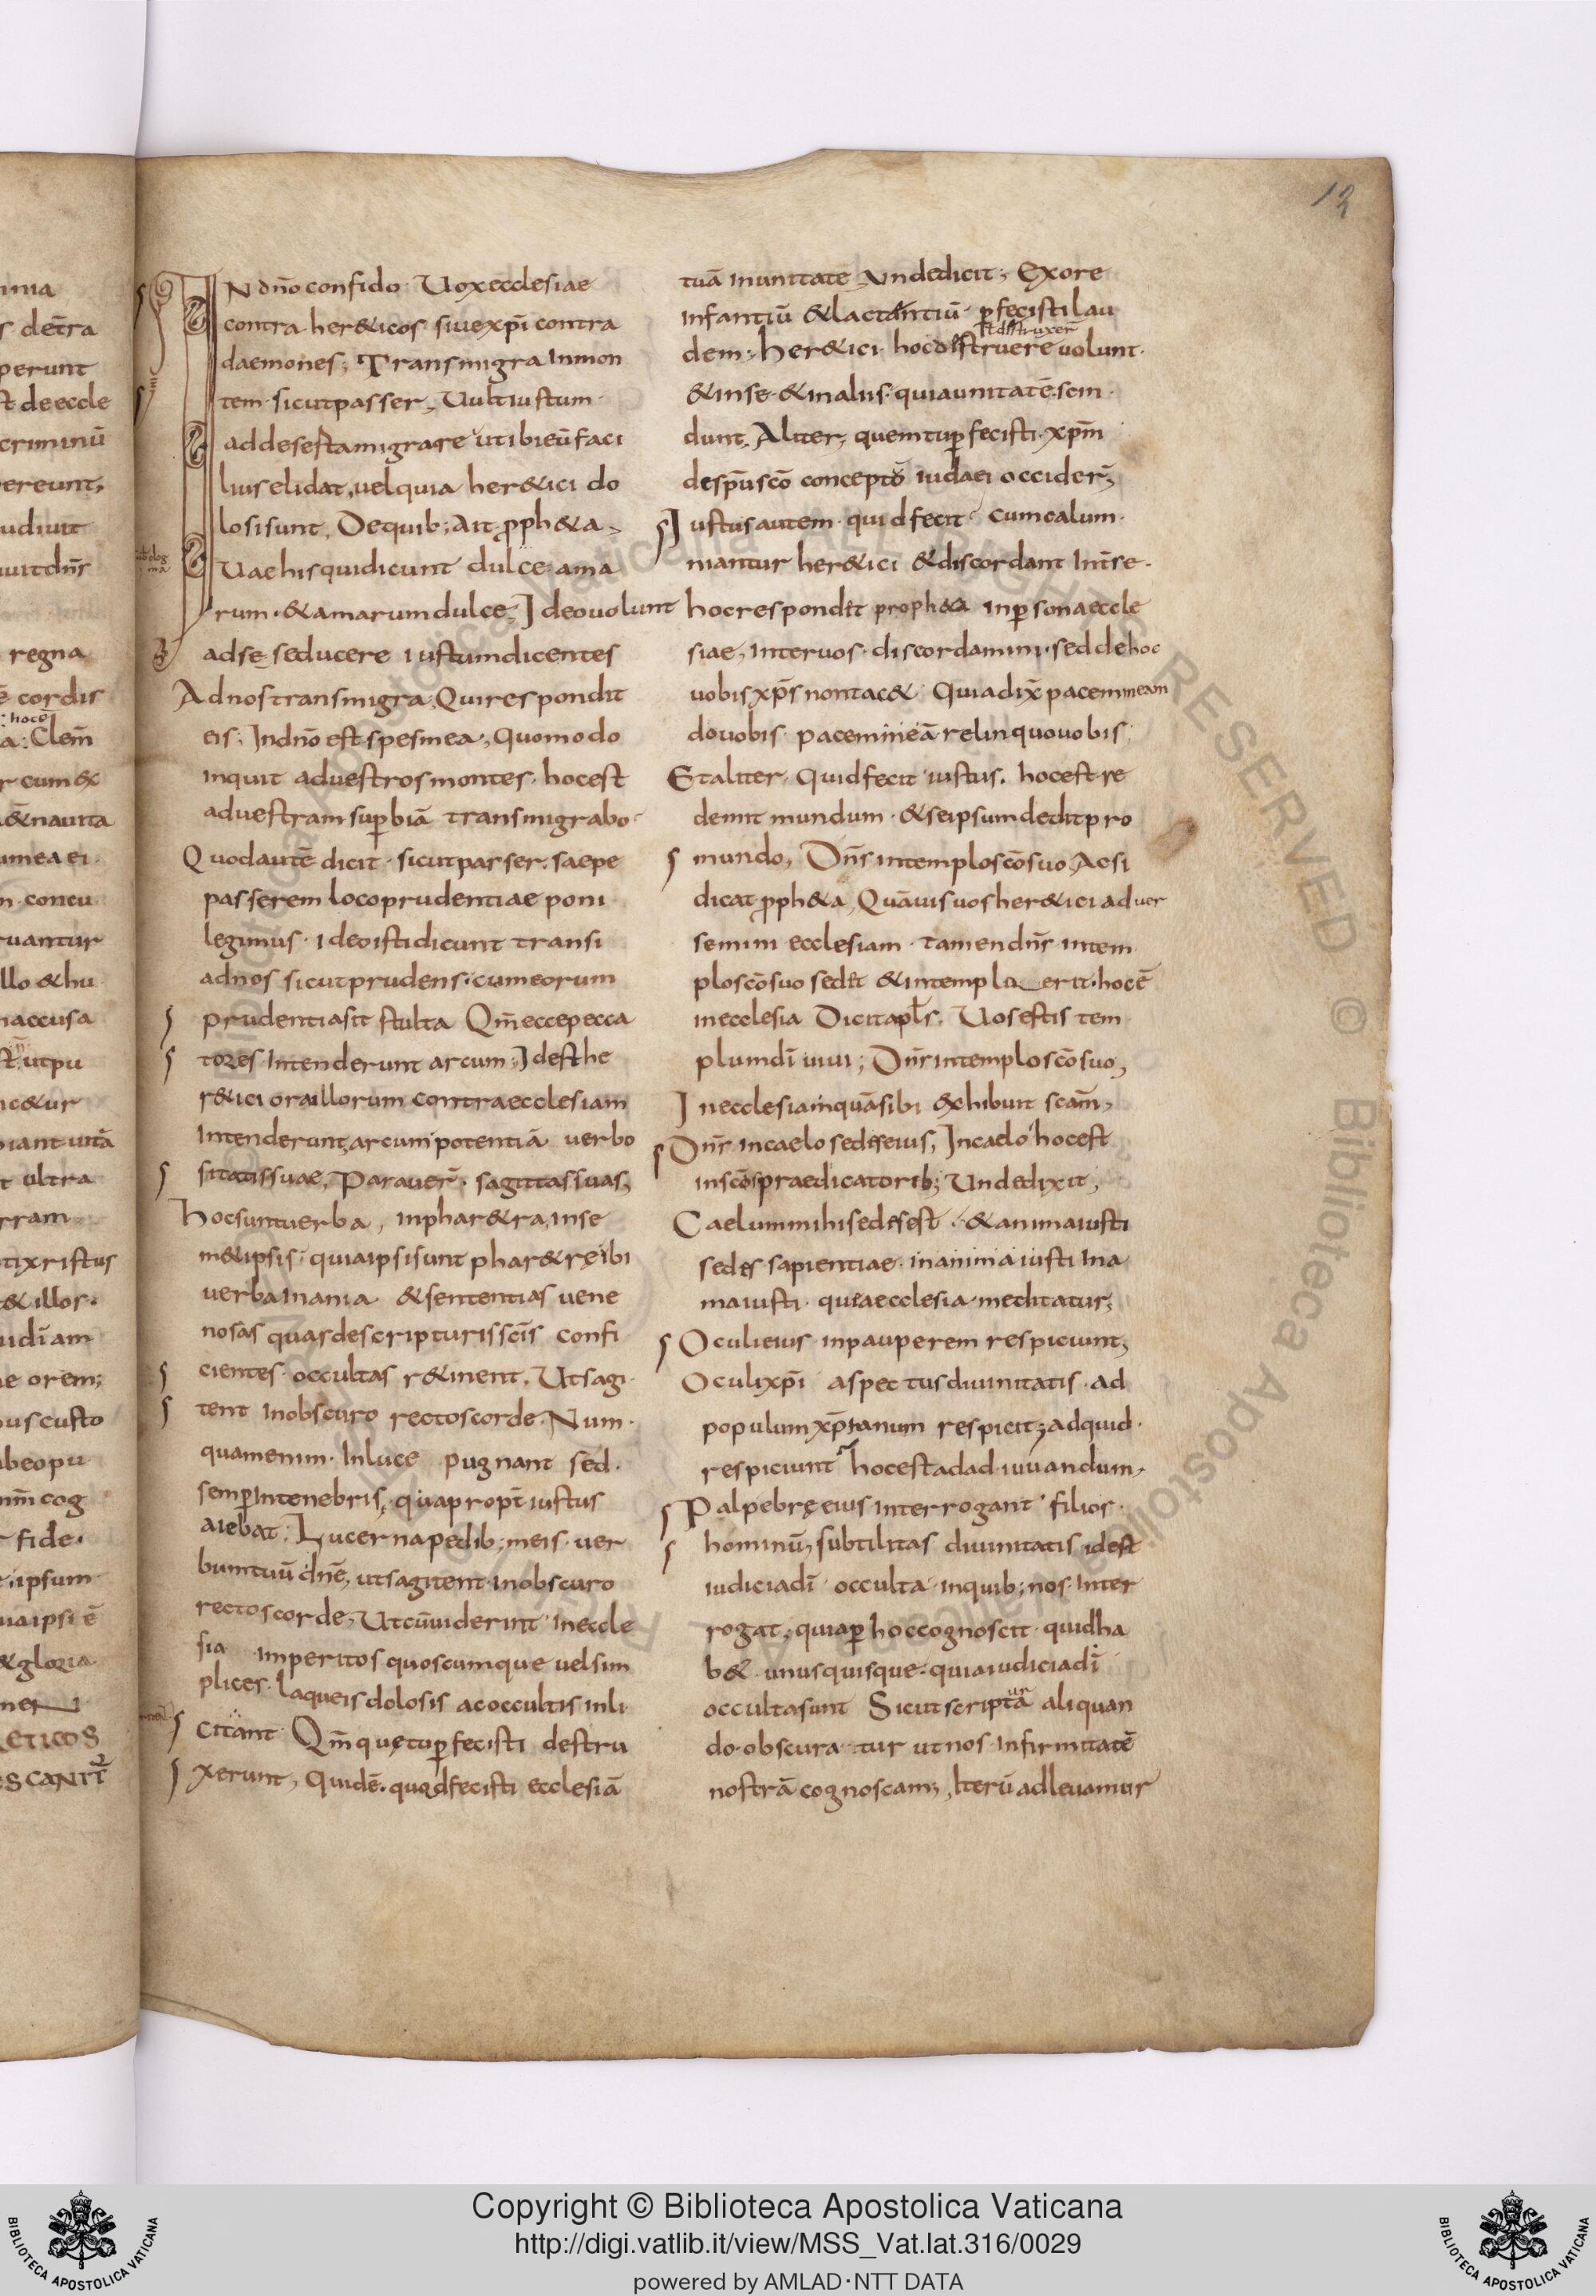 13
IN dño confido. Uox ecclesiae
contra her&icos siue xp̄i contra
daemones; Transmigra In mon
tem sicut passer, Uult iustum
ad desesta migrare ut ibi eū faci
lius elidat, uel quia her&ici do
losi sunt, De quib; ait pph&a,
Uae his qui dicunt dulce ama
rum & amarum dulce, Ideo uolunt
ad se seducere iustum dicentes
Ad nos transmigra, Qui respondit
eis, In dño est spes mea, Quomodo
inquit ad uestros montes hoc est
ad uestram supbiā transmigrabo
Quod autē dicit sicut passer saepe
passerem loco prudentiae poni
legimus ideo isti dicunt transi
ad nos sicut prudens cum eorum
prudentia sit stulta Qm̄ ecce pecca
tores Intenderunt arcum, Id est he
r&ici ora illorum contra ecclesiam
Intenderunt, arcum potentiā uerbo
sitatis suae, Parauer̄ sagittas suas,
Hoc sunt uerba, in phar&ra, in se
m&ipsis quia ipsi sunt phar&rę ibi
uerba Inania & sententias uene
nosas quas de scripturis sc̄is confi
cientes occultas r&inent, Ut sagi
tent In obscuro rectos corde. Num
quam enim In luce pugnant sed
semp In tenebris, quapropt̄ iustus
aiebat, Lucerna pedib; meis uer
bum tuū dñe, ut sagitent In obscuro
rectos corde, Ut cū uiderint In eccle
sia Imperitos quoscumque uel sim
plices laqueis dolosis ac occultis inli
citant Qm̄ quę tu pfecisti destru
xerunt, Quidē quod fecisti ecclesiā
tuā In unitate Unde dicit, Ex ore
Infantiū & lactantiū pfecisti lau
dem, Her&ici hoc destruere uolunt
& in se & in aliis quia unitatē scin
dunt, Aliter, quem tu pfecisti xp̄m
de sp̄u sc̄o conceptū iudaei occider̄,
Iustus autem quid fecit cum calum
niantur her&ici & discordant Int̄ se
hoc respondit proph&a In psona eccle
siae, Inter uos discordamini sed de hoc
uobis xp̄s non tac& Quia dix̄ pacem meam
do uobis pacem meā relinquo uobis
Et aliter, Quid fecit iustus. hoc est re
demit mundum & se ipsum dedit pro
mundo, Dñs in templo sc̄o suo, Ac si
dicat pph&a, Quāuis uos her&ici aduer
semini ecclesiam tamen dñs in tem
plo sc̄o suo sedit & in templo erit hoc ē
in ecclesia Dicit apls, Uos estis tem
plum dī uiui; Dñs in templo sc̄o suo,
In ecclesiam quā sibi exhibuit scam̄,
Dñs in caelo sedes eius, In caelo hoc est
in sc̄os praedicatorib; Unde dixit,
Caelum mihi sedes est & anima iusti
sedes sapientiae in anima iusti In a
ma iusti quia ecclesia meditatur,
Oculi eius in pauperem respiciunt,
Oculi xp̄i aspectus diuinitatis ad
populum xp̄ianum respicit, ad quid
respiciunt hoc est ad adiuuandum,
Palpebrę eius Interrogant filios
hominū, subtilitas diuinitatis id est
iudicia dī occulta in quib; nos Inter
rogat, quia p hoc cognoscit quid ha
b& unusquisque quia iudicia dī
occulta sunt Sicut scriptura aliquan
do obscuratur ut nos Infirmitatē
nostrā cognoscam; Iterū adleuamur
Copyright © Biblioteca Apostolica Vaticana
http://digi.vatlib.it/view/MSS_Vat.lat.316/0029
powered by AMLAD·NTT DATA
BIBLIOTECA APOSTOLICA VATICANA
BIBLIOTECA APOSTOLICA VATICANA